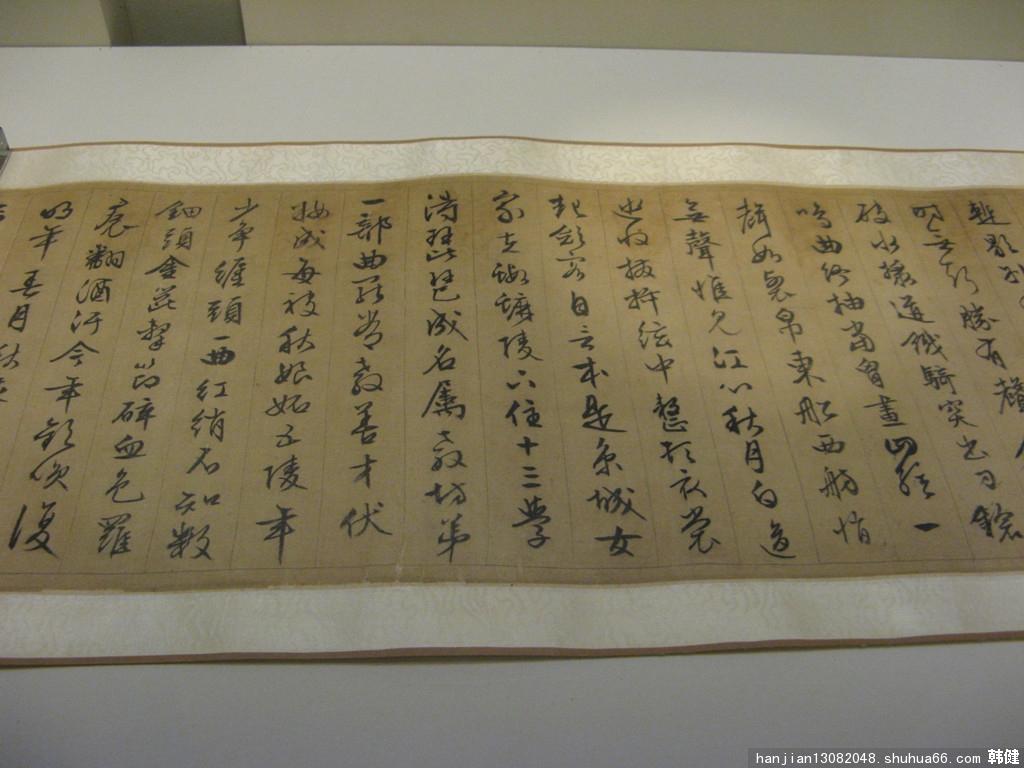 時無聲勝有聲
破水漿迸鐵騎突出刀鎗
鳴曲終抽當胸畫四絃一
聲如裂帛東船西舫悄
無聲惟見江心秋月白
收撥插絃中整頓衣裳
起斂容自言本是京城女
家在蝦蟆陵下住十三學
得琵琶成名屬教坊第
一部曲罷常教善才伏
妝成每被秋娘妬五陵年
少爭纏頭一曲紅綃不知數
鈿頭金篦擊節碎血色羅
裠翻酒汙今年歡笑復
明年春月秋
hanjian13082048.shuhua66.com 韩健